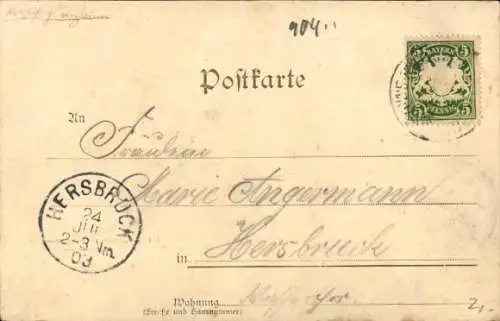 904..
BAYERN
5 5
Postkarte
An
Fräulein
Marie Angermann
HERSBRUCK
24
JUL
2-3 Nm.
03
in Hersbruck
Wohnung
(Straße und Hausnummer)
2,-